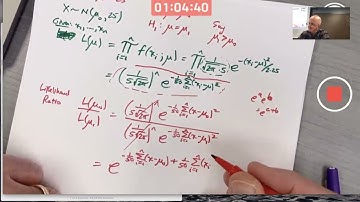 01:04:40
X ~ N(μ₀, 25)
H₁: μ = μ₁
Say μ₁ > μ₀
Given: x₁, ..., xₙ
L(μ) = ∏ᵢ₌₁ⁿ f(xᵢ; μ) = ∏ᵢ₌₁ⁿ 1/(√2π · 5) e^{-(xᵢ-μ)²/2·25}
= (1/(5√2π))ⁿ e^{-1/50 Σᵢ₌₁ⁿ(xᵢ-μ)²}
Likelihood Ratio
L(μ₀)/L(μ₁) = (1/(5√2π))ⁿ e^{-1/50 Σᵢ₌₁ⁿ(xᵢ-μ₀)²} / (1/(5√2π))ⁿ e^{-1/50 Σᵢ₌₁ⁿ(xᵢ-μ₁)²}
eᵃeᵇ
= eᵃ⁺ᵇ
= e^{-1/50 Σᵢ₌₁ⁿ(xᵢ-μ₀)² + 1/50 Σᵢ₌₁ⁿ(xᵢ